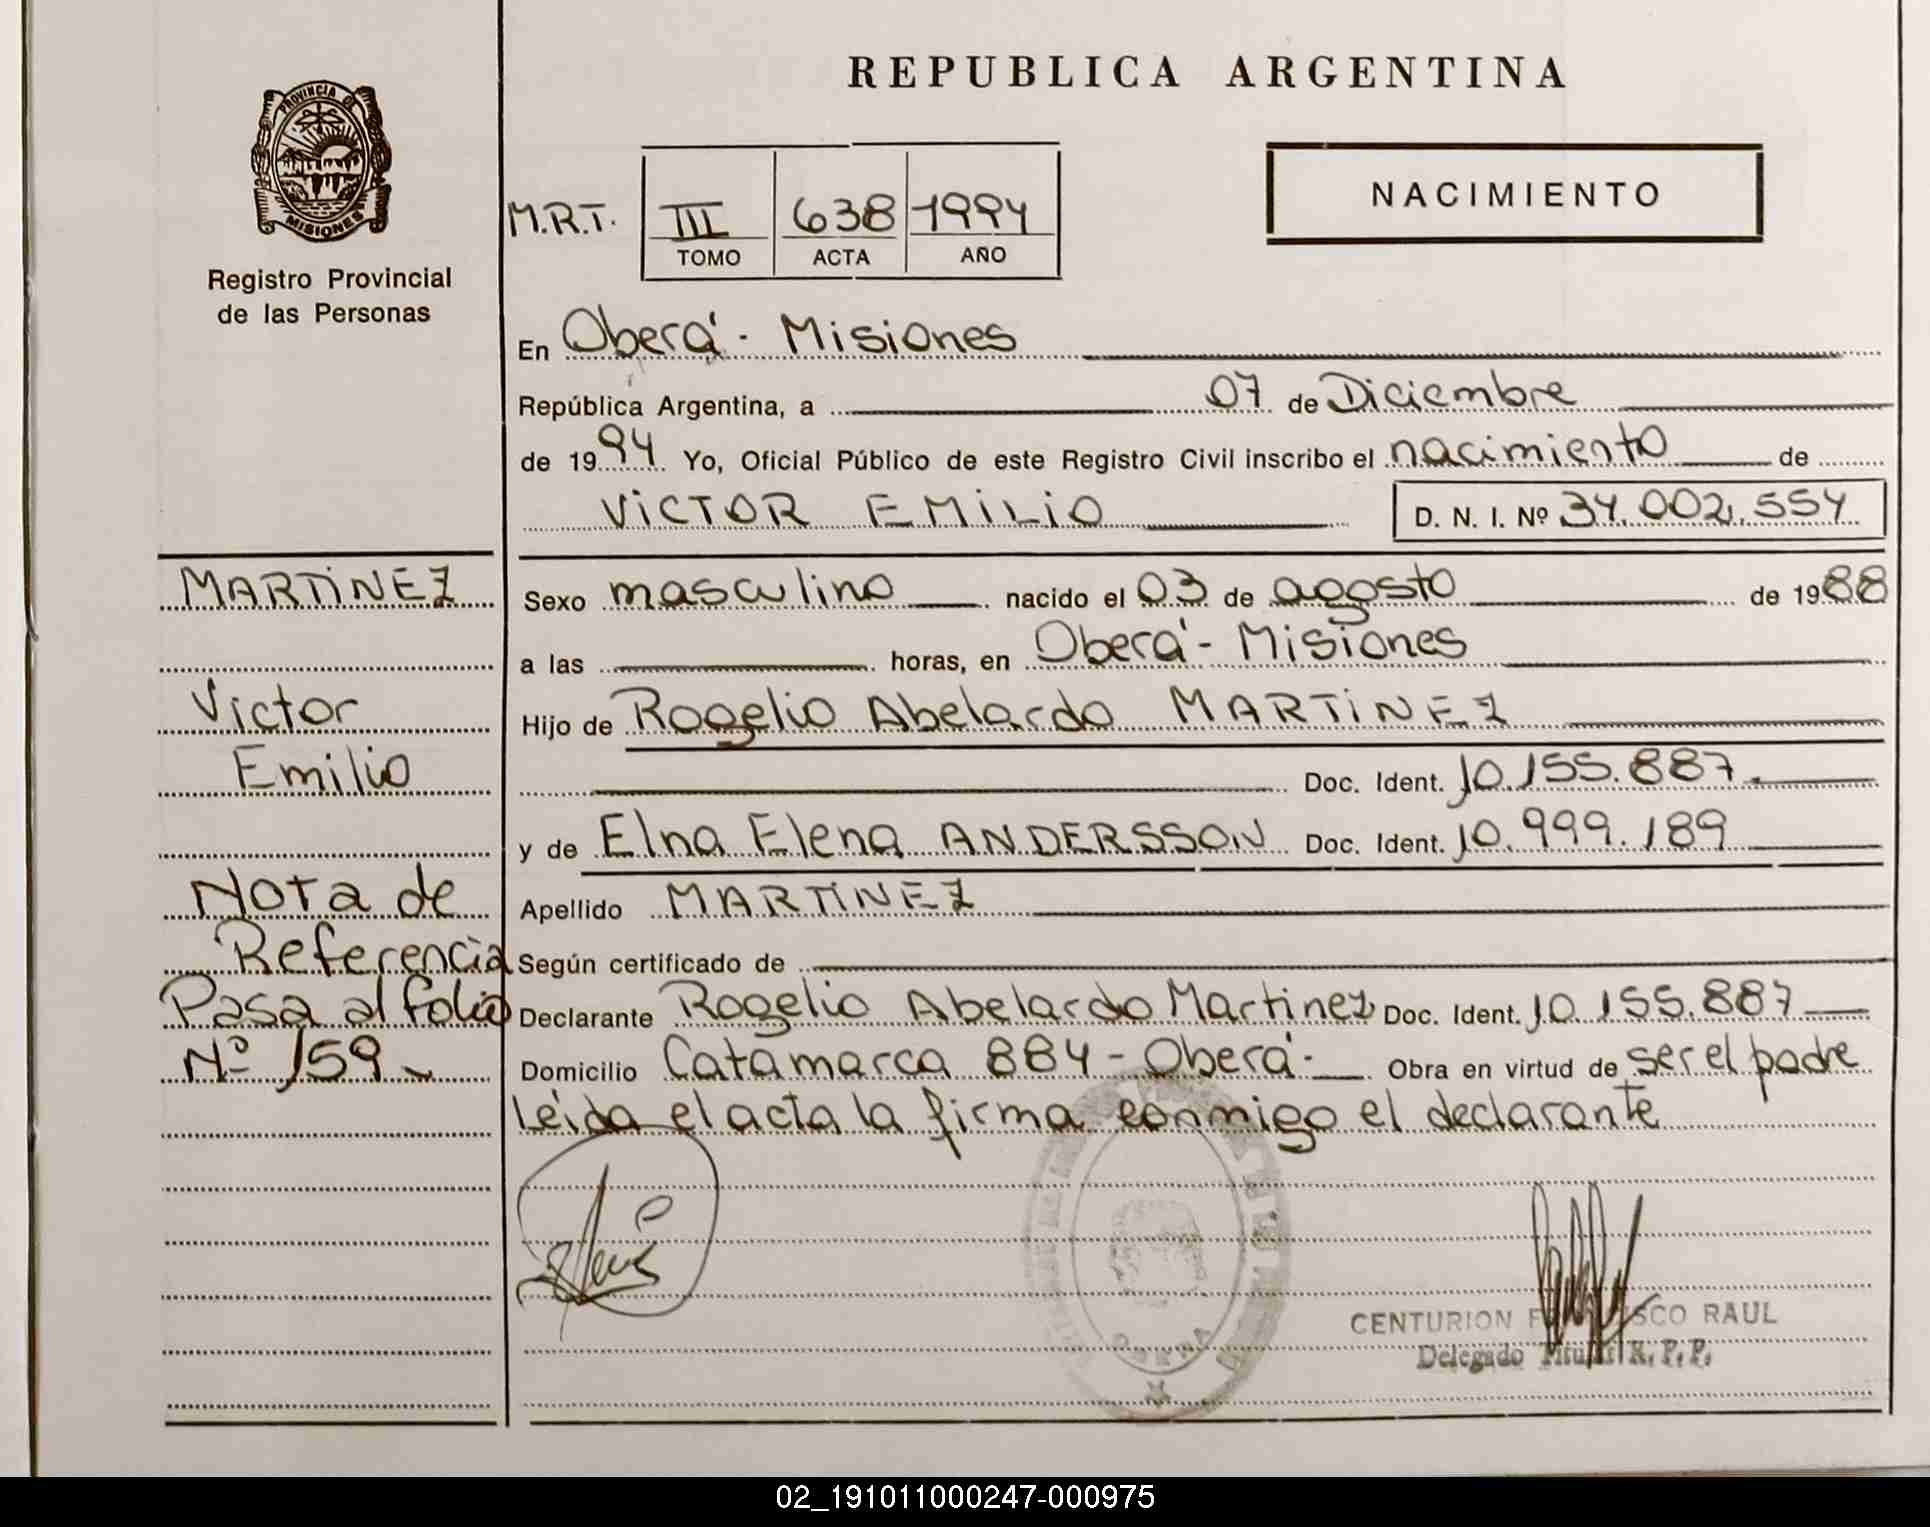 REPUBLICA ARGENTINA
PROVINCIA DE
MISIONES
Registro Provincial
de las Personas
NACIMIENTO
M.R.T. III 638 1994
TOMO ACTA AÑO
En Oberá - Misiones
República Argentina, a 07 de Diciembre
de 1994 Yo, Oficial Público de este Registro Civil inscribo el nacimiento de
VICTOR EMILIO D. N. I. Nº 34.002.554
MARTINEZ
Victor
Emilio
Nota de
Referencia
Pasa al folio
Nº 159
Sexo masculino nacido el 03 de agosto de 1988
a las horas, en Oberá - Misiones
Hijo de Rogelio Abelardo MARTINEZ
Doc. Ident. 10.155.887
y de Elna Elena ANDERSSON Doc. Ident. 10.999.189
Apellido MARTINEZ
Según certificado de
Declarante Rogelio Abelardo Martinez Doc. Ident. 10.155.887
Domicilio Catamarca 884 - Oberá - Obra en virtud de ser el padre
Leída el acta la firma conmigo el declarante
OBERA
CENTURION FRANCISCO RAUL
Delegado Titular R. P. P.
02_191011000247-000975